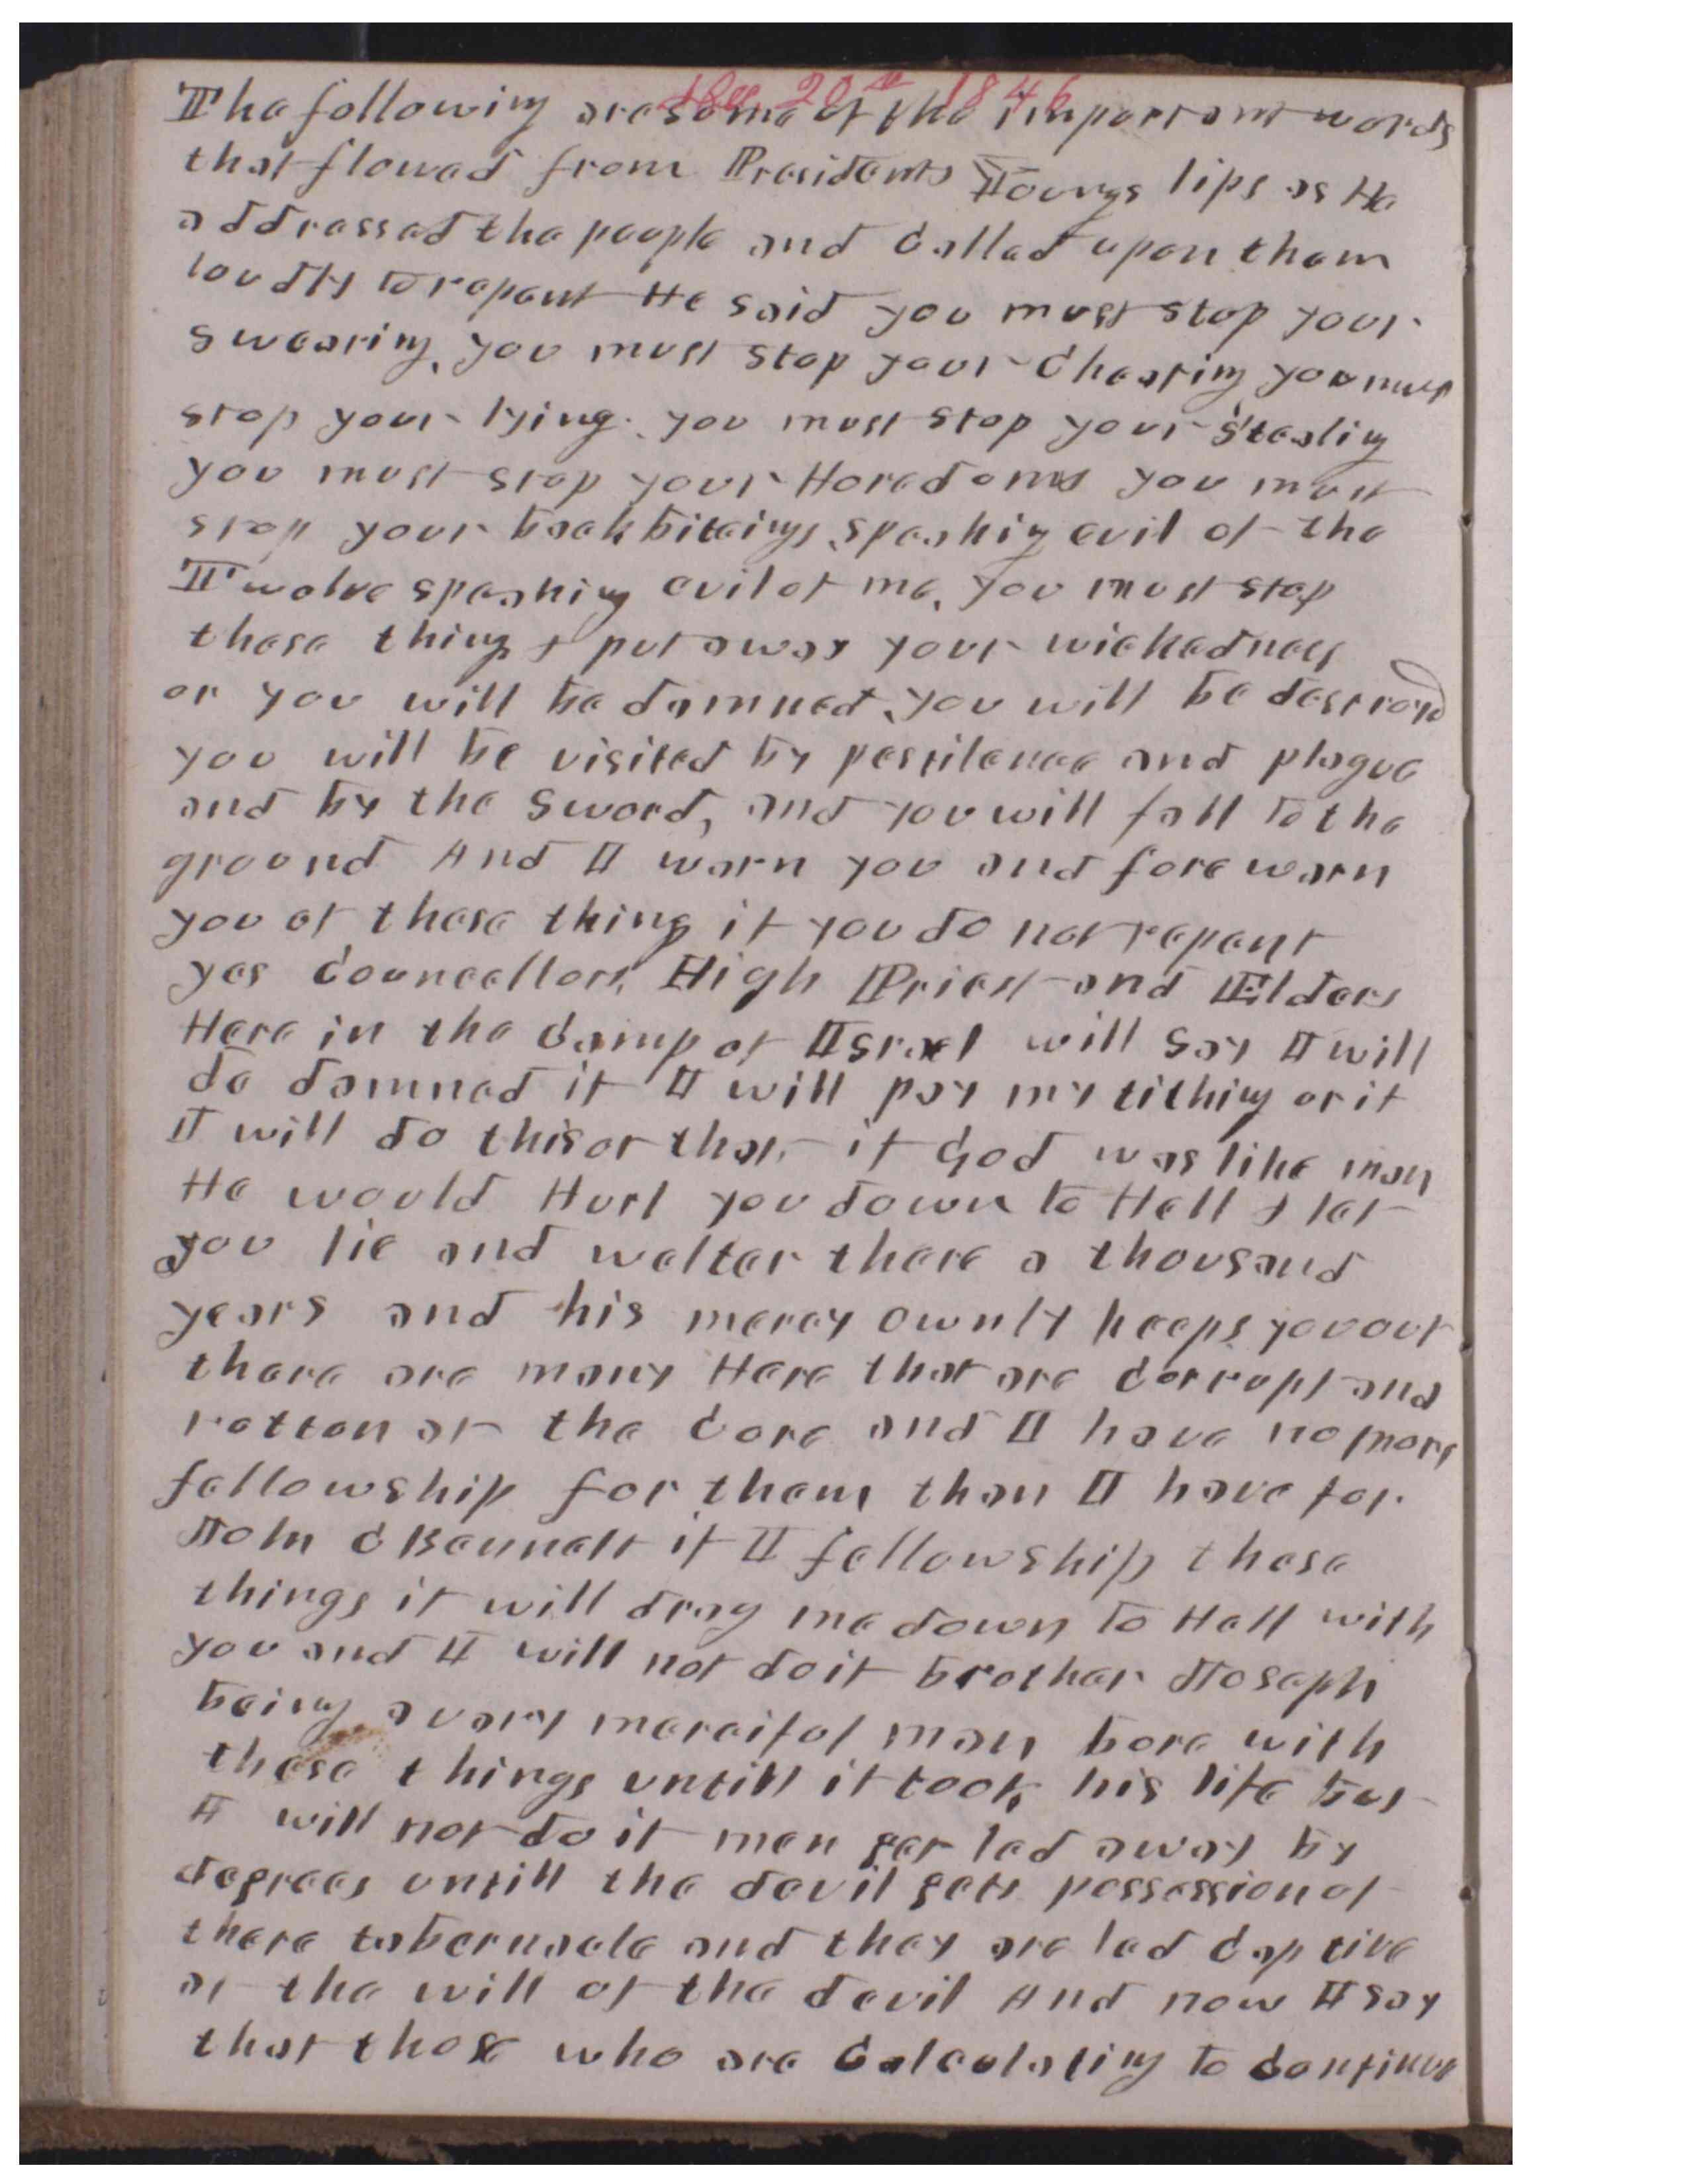 Dec 20th 1846
The following are some of the important words
that flowed from Presidents Youngs lips as He
addressed the people and Called upon them
loudly to repent He said you must stop your
swearing, you must stop your Cheating you must
stop your lying. you must stop your Stealing
you must stop your Horedoms you must
stop your backbiteings, speaking evil of the
Twelve speaking evil of me, you must stop
these things & put away your wickedness
or you will be damned, you will be destroyed
you will be visited by pestilence and plague
and by the Sword, and you will fall to the
ground And I warn you and fore warn
you of these thing if you do not repent
yes Councellors, High Priest and Elders
Here in the Camp of Israel will say I will
de damned if I will pay my tithing or if
I will do this or that, if God was like man
He would Hurl you down to Hell & let
you lie and welter there a thousand
years and his mercy ownly keeps you out
there are many Here that are Corrupt and
rotten at the Core and I have no more
fellowship for them than I have for
John C Bennett if I fellowship these
things it will drag me down to Hell with
you and I will not do it brother Joseph
being a very merciful man bore with
these things untill it took his life but
I will not do it men get led away by
degrees untill the devil gets possession of
there tabernacle and they are led Captive
at the will of the devil And now I say
that those who are Calculating to Continue